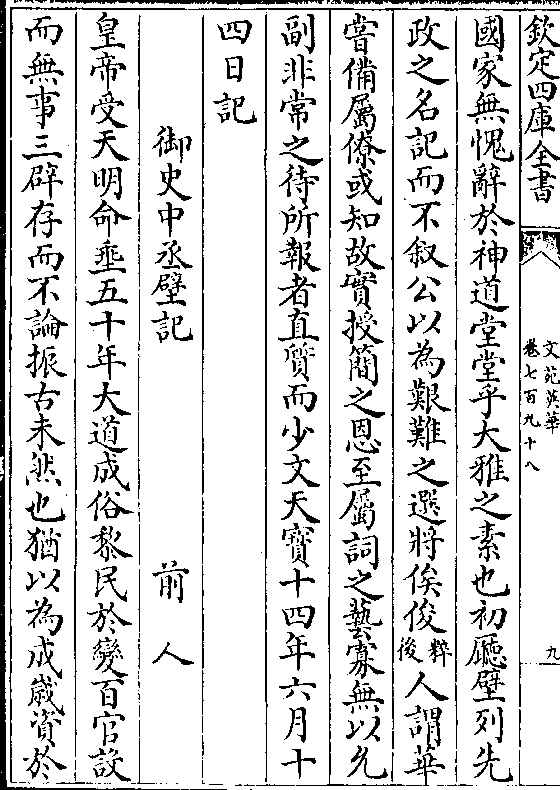 欽定四庫全書
文苑英華
卷七百九十八
九
國家無愧辭於神道堂堂乎大雅之素也初廳壁列先
政之名記而不叙公以為艱難之選將俟俊粹後人謂華
嘗備屬僚或知故實授簡之恩至屬詞之藝寡無以允
副非常之待所報者直質而少文天寶十四年六月十
四日記
御史中丞壁記 前人
皇帝受天明命垂五十年大道成俗黎民於變百官設
而無事三辟存而不論振古未然也猶以為成嵗資於